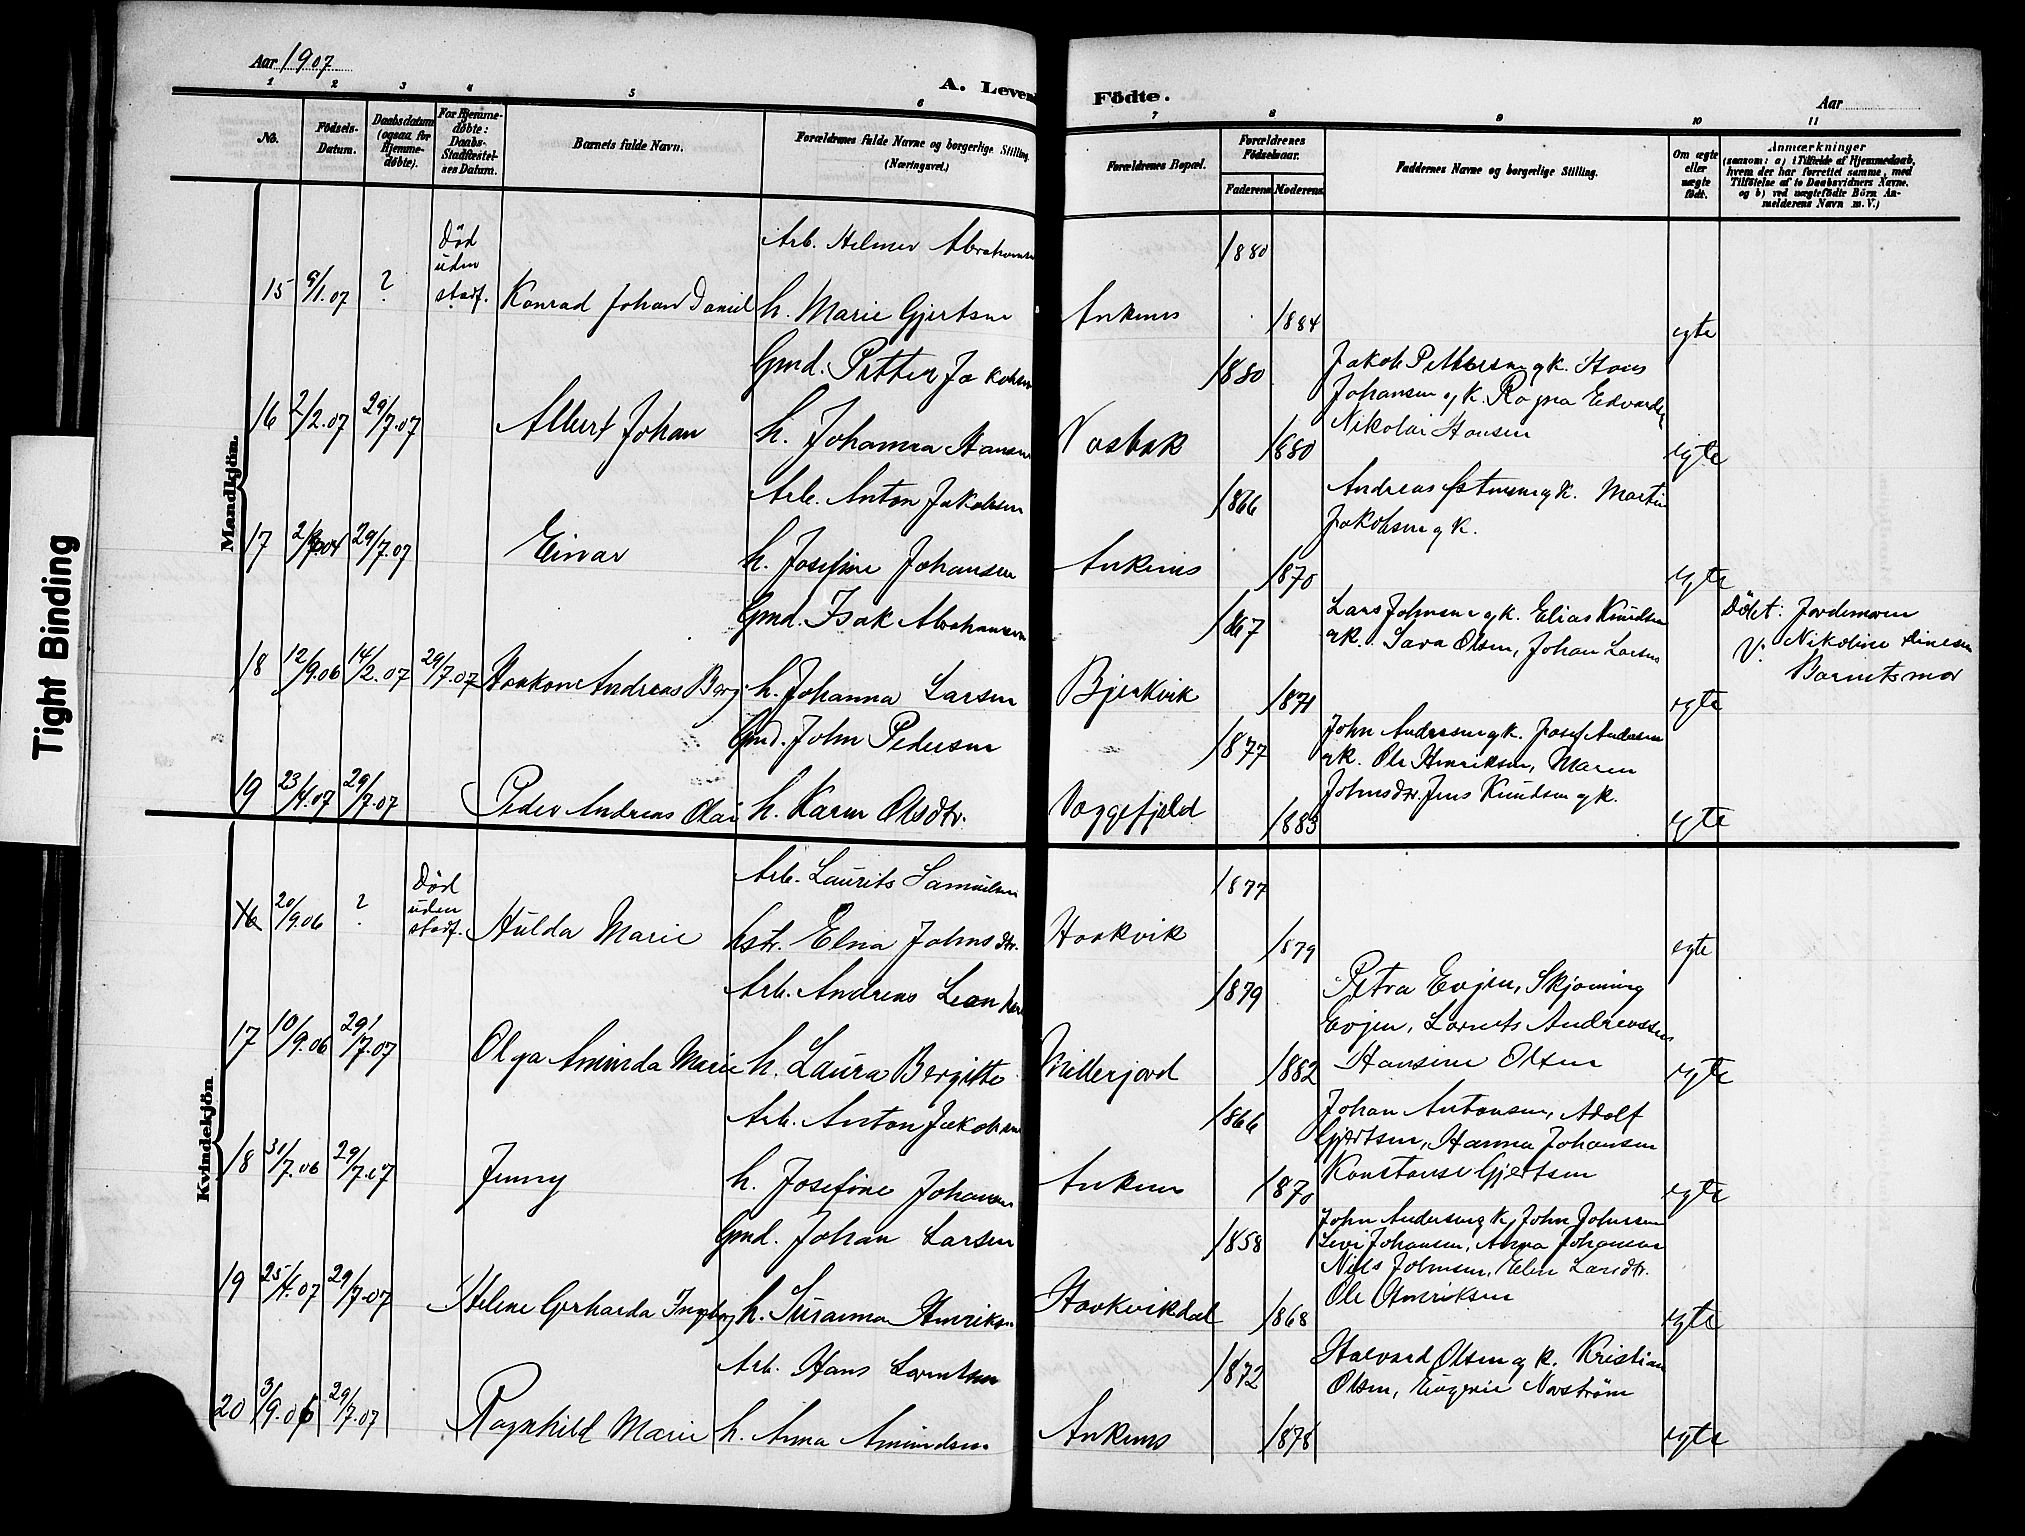 Aar 1907
A. Levende
Födte.
Aar
1 2 3 4 5 6 7 8 9 10 11
No.
Födsels-
Datum.
Daabsdatum
(ogsaa for
Hjemme-
døbte).
For Hjemme-
døbte:
Daabs-
Stadfæstel-
ses Datum.
Barnets fulde Navn.
Forældrenes fulde Navne og borgerlige Stilling.
(Næringsvei.)
Forældrenes Bopæl.
Forældrenes
Födselsaar.
Faderens Moderens
Faddernes Navne og borgerlige Stilling.
Om ægte
eller
uægte
födt.
Anmærkninger
(saasom: a) i Tilfælde af Hjemmedaab,
hvem der har forrettet samme, med
Tilföielse af to Daabsvidners Navne,
og b) ved uægtefödte Börn An-
melderens Navn m. V.)
Mandkjön.
Død
uden
stadf.
Arb. Helmer Abrahamsen
1880
15 9/1.07 ? Konrad Johan Daniel h. Marie Gjertsen Ankenes 1884 egte
Gmd. Petter Jakobsen 1880
Jakob Pettersen og k. Hans
Johansen og k. Ragna Edvards
Nikolai Hansen
16 2/2.07 29/7.07 Albert Johan h. Johanna Hansen Vasbak 1880 egte
Arb. Anton Jakobsen 1866
Andreas Estensen og k. Martin
Jakobsen og k.
17 29/7.07 Einar h. Josefine Johansen Ankenes 1870 egte
Gmd. Isak Abrahamsen 1867
Lars Johnsen og k. Elias Knudsen
og k. Sara Olsen, Johan Larsen
Døbt: Jordemoren
V. Nikoline Einesen
Barnets mor
18 12/9.06 14/2.07 29/7.07 Haakon Andreas Berg h. Johanna Larsen Bjerkvik 1871 egte
Gmd. John Pedersen 1877
John Andersen og k. Josef Andersen
og k. Ole Henriksen, Maren
Johnsdtr. Jens Knudsen og k.
19 23/4.07 29/7.07 Peder Andreas Olai h. Karen Olsdtr. Vaggefjeld 1883 egte
Kvindekjön
Død
uden
stadf.
Arb. Laurits Samuelsen 1877
16 20/9.06 ? Hulda Marie hstr. Elna Johnsdtr. Haakvik 1879 egte
Arb. Andreas Leonhard 1879
Petra Evjen, Skjønning
Evjen, Lornts Andreassen
Hansine Olsen
17 10/9.06 29/7.07 Olga Aminda Marie h. Laura Bergitte Millerjord 1882 egte
Arb. Anton Jakobsen 1866
Johan Antonsen, Adolf
Gjertsen, Hanna Johansen
Konstanse Gjertsen
18 31/7.06 29/7.07 Jenny h. Josefine Johansen Ankenes 1870 egte
Gmd. Johan Larsen 1858
John Andersen og k, John Johnsen
Levi Johansen, Anna Johansen
Nils Johnsen, Elen Larsdtr.
Ole Henriksen
19 25/4.07 29/7.07 Helene Gerharda Ingeborg h. Susanna Henriksen Haakvikdal 1868 egte
Arb. Hans Lorentsen 1872
Halvard Olsen og k. Kristian
Olsen, Eugenie Norstrøm
20 3/9.06 29/7.07 Ragnhild Marie h. Anna Amundsen Ankenes 1878 egte
Tight Binding